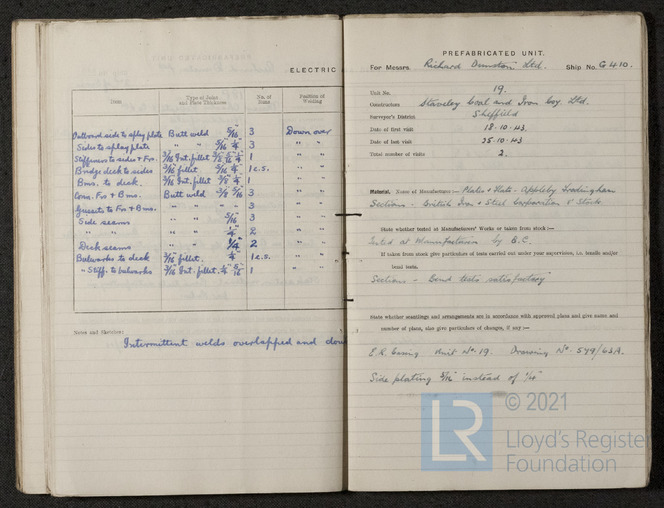 ELECTRIC
Item
Type of Joint and Plate Thickness
No. of Runs
Position of Welding
Outboard side to splay plate Butt weld 5/16 3 Down over
Sides to splay plate " " 5/16 1/4 3 " "
Stiffeners to sides + Frs. 3/16 Int. fillet 3 " "
Bridge deck to sides 3/16 fillet 1 c.s. " "
Bms. to deck. 3/16 Int. fillet 1 " "
Conn. Frs + Bms. Butt weld 3 " "
Gussets to Frs + Bms. " " " 3 " "
Side seams " " 5/16 3 " "
" " " " 1/4 2 " "
Deck seams " " 1/4 2 " "
Bulwarks to deck 3/16 fillet. 1/4 1 c.s. " "
" Stiff. to bulwarks 3/16 Int. fillet. 1 " "
Notes and Sketches:
Intermittent welds overlapped and dou
PREFABRICATED UNIT.
For Messrs. Richard Dunston Ltd. Ship No. G 410.
Unit No. 19.
Constructors Staveley Coal and Iron Coy Ltd.
Surveyor's District Sheffield
Date of first visit 18.10.43
Date of last visit 25.10.43
Total number of visits 2.
Material. Name of Manufacturer:- Plates + Flats - Appleby Frodingham
Sections - British Iron + Steel Corporation Stock
State whether tested at Manufacturers' Works or taken from stock:—
Tested at Manufacturers by B.C.
If taken from stock give particulars of tests carried out under your supervision, i.e. tensile and/or
bend tests.
Sections - Bend tests satisfactory
State whether scantlings and arrangements are in accordance with approved plans and give names and
number of plans, also give particulars of changes, if any :—
E.R. Casing Unit No. 19. Drawing No. 579/63A.
Side plating 5/16" instead of 1/4"
© 2021
LR
Lloyd's Register
Foundation